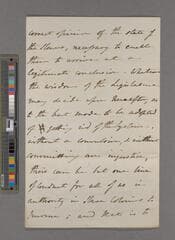 correct opinion of the state of
the Slaves, necessary to enable
them to arrive at a
legitimate conclusion. Whatever
the wisdom of the Legislature
may decide upon hereafter, as
to the best mode to be adopted
of getting rid of the
without a convulsion, & without
committing an injustice,
there can be but one line
of conduct for all of us in
authority in these Colonies to
pursue; and that is to